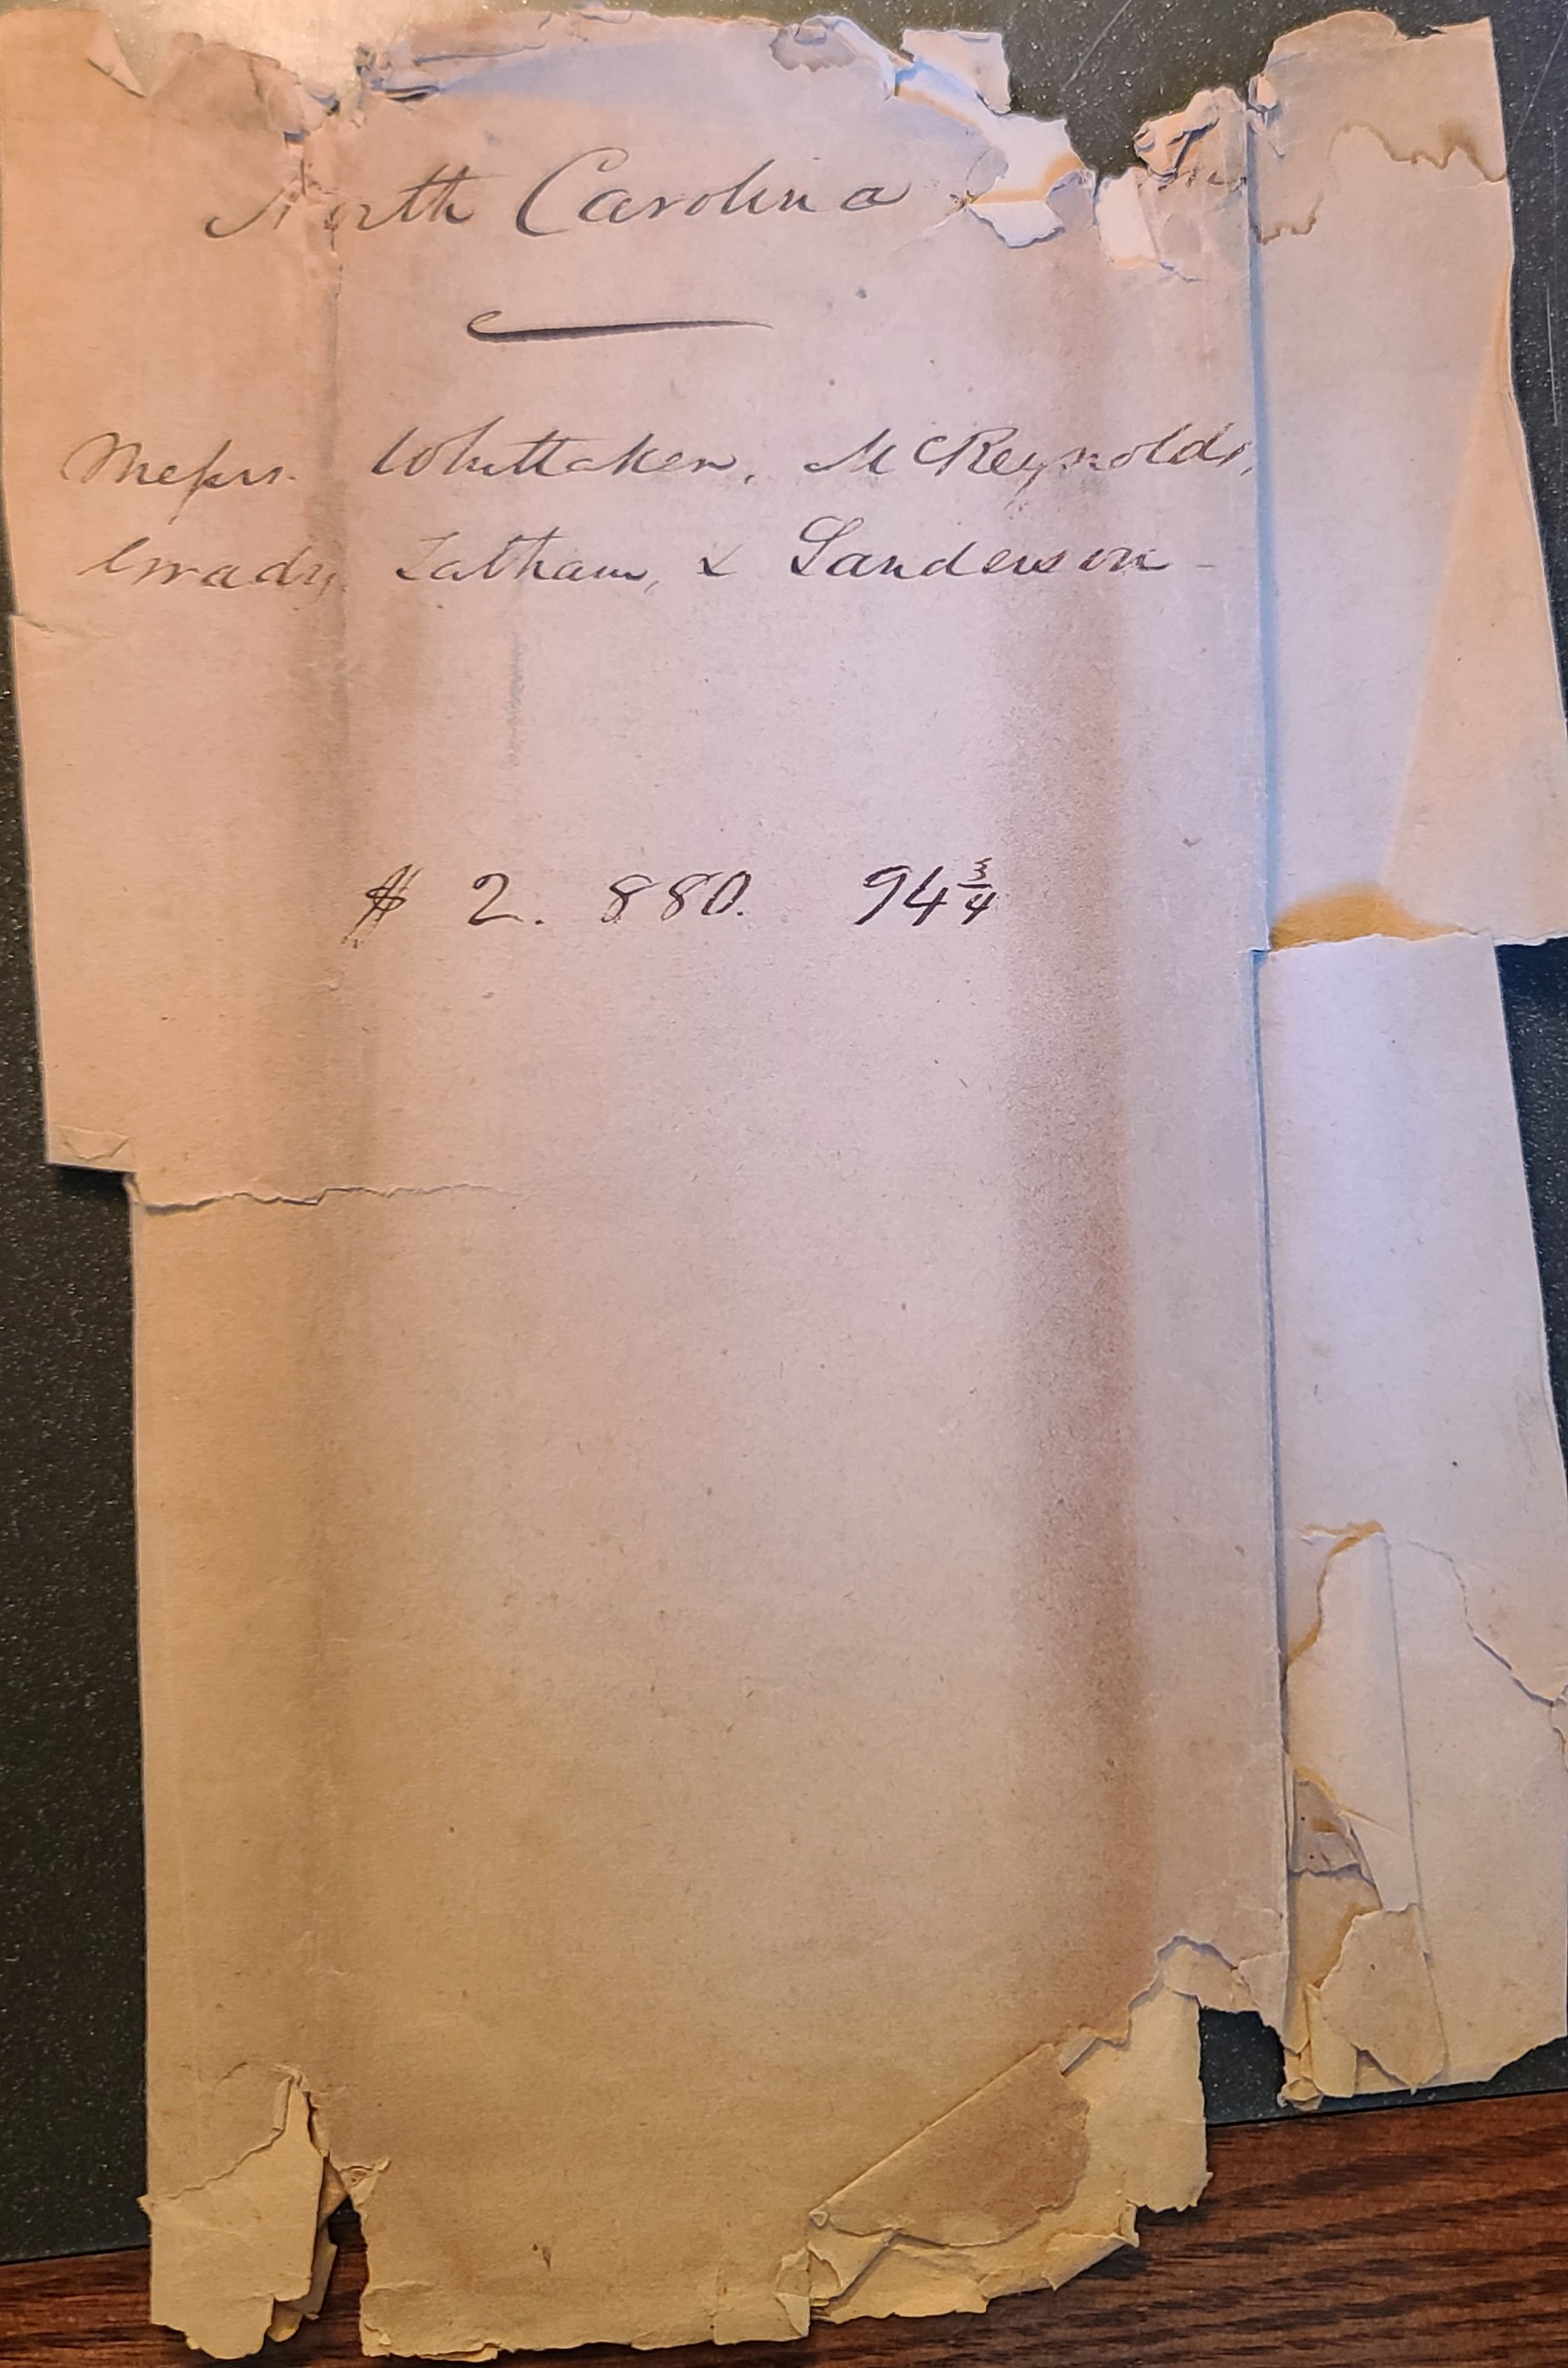 North Carolina
Messrs. Whittaker, McReynolds,
Grady, Latham, & Sanderson -
$ 2. 880. 94 3/4